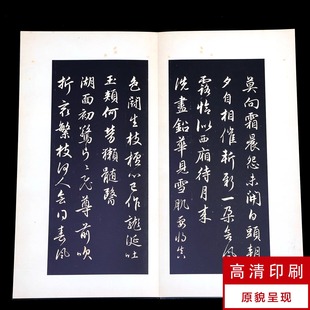 莫向霜晨怨未開白頭朝
夕自相催斬新一朵含風
露恰似西廂待月來
洗盡鉛華見雪肌要將真
色鬥生枝檀心已作龍涎吐
玉頰何勞獺髓醫
湖面初驚片〻飛尊前吹
折最繁枝何人會得春風
高清印刷
原貌呈现